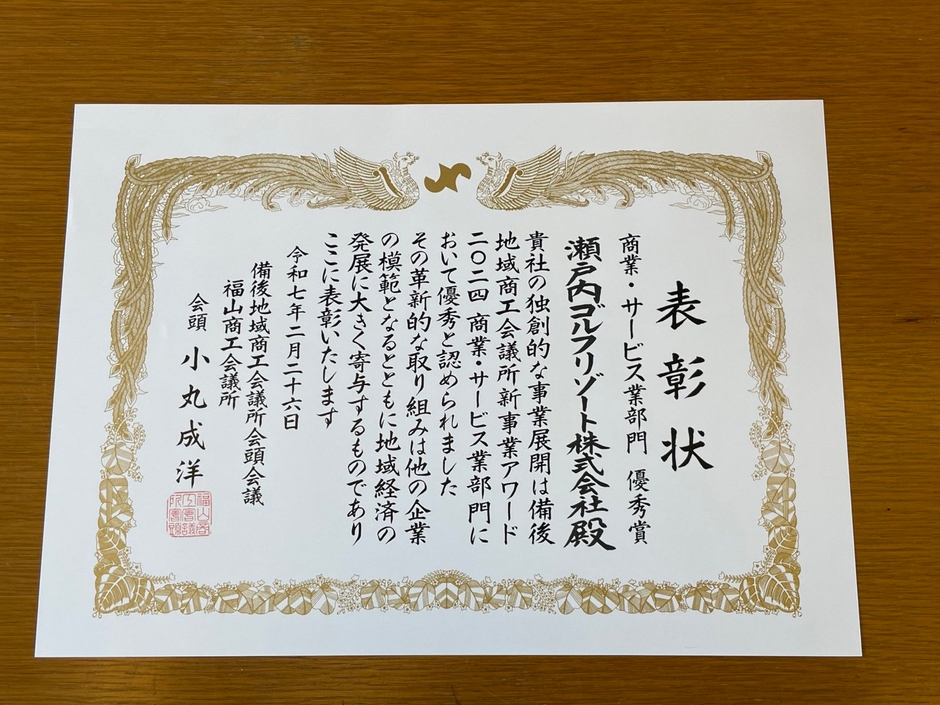 表彰状
商業・サービス業部門 優秀賞
瀬戸内ゴルフリゾート株式会社殿
貴社の独創的な事業展開は備後
地域商工会議所新事業アワード
二〇二四 商業・サービス業部門に
おいて優秀と認められました
その革新的な取り組みは他の企業
の模範となるとともに地域経済の
発展に大きく寄与するものであり
ここに表彰いたします
令和七年二月二十六日
備後地域商工会議所会頭会議
福山商工会議所
会頭 小丸成洋